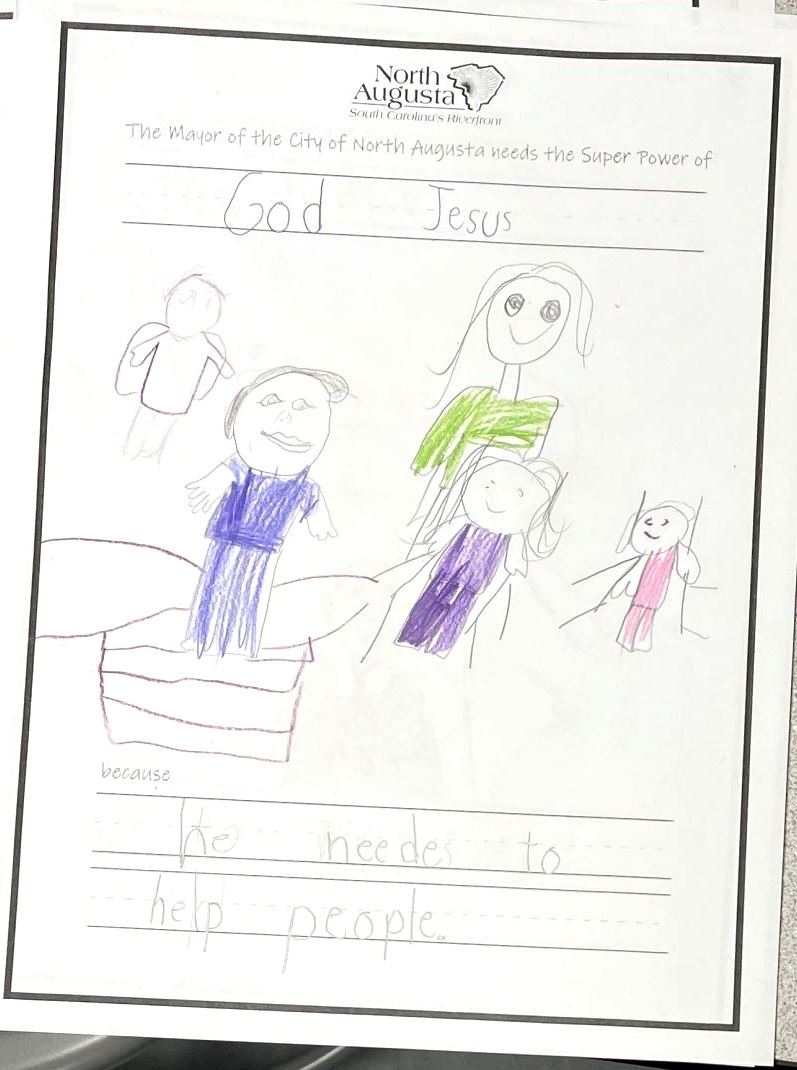 North
Augusta
South Carolina's Riverfront
The Mayor of the City of North Augusta needs the Super Power of
God Jesus
because
He needes to
help people.